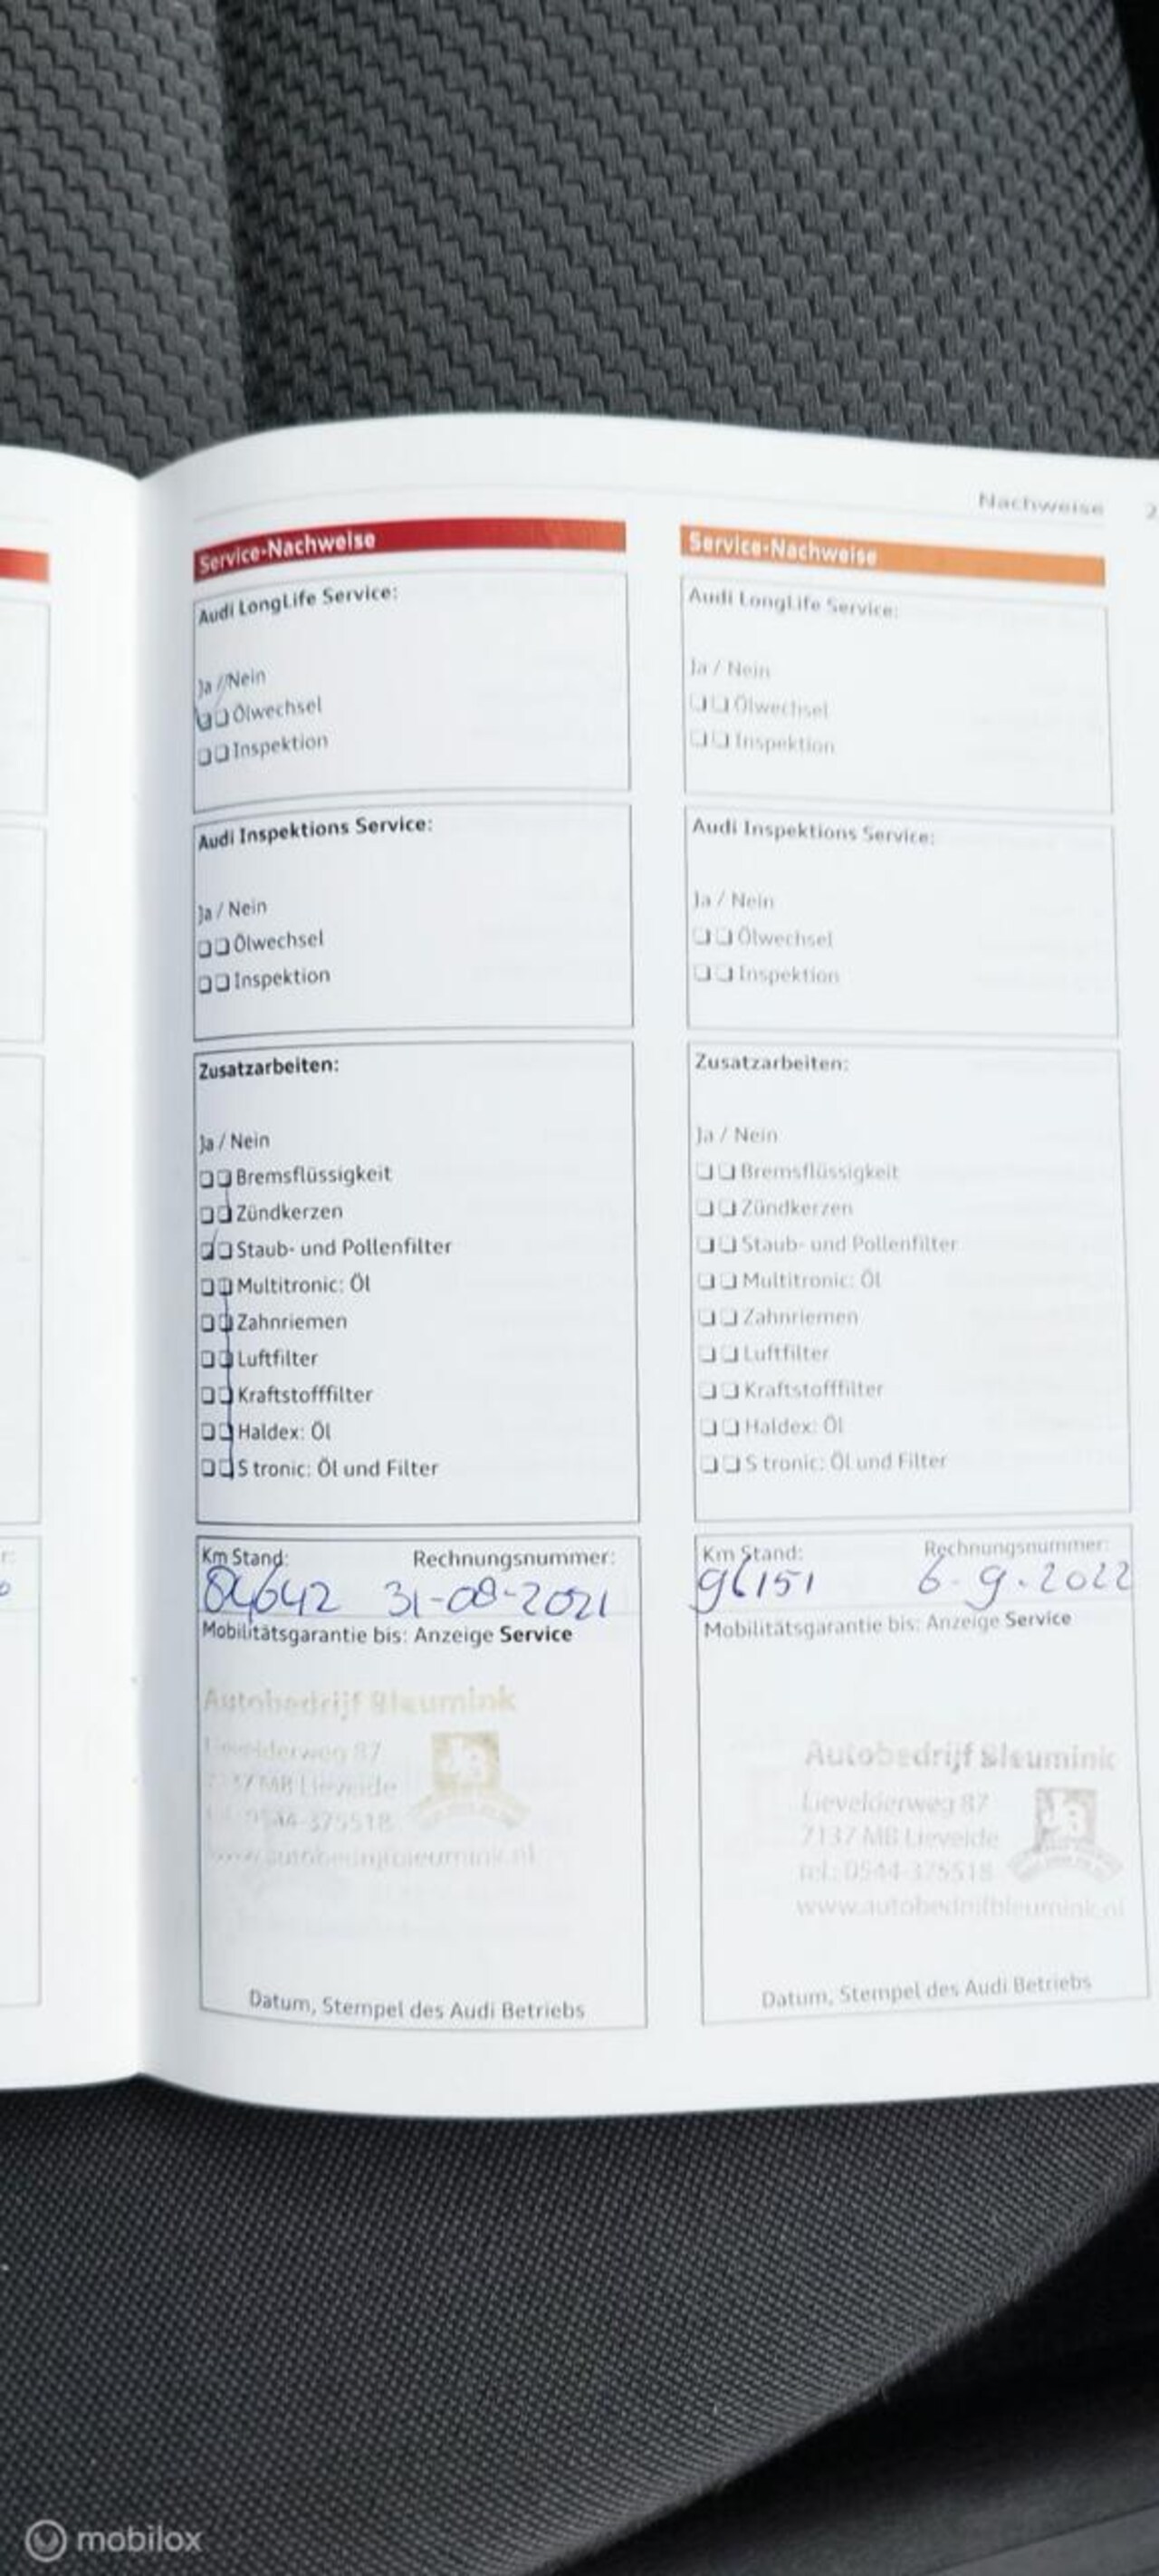 Nachweise 2
Service-Nachweise
Audi LongLife Service:
Ja / Nein
Ölwechsel
Inspektion
Audi Inspektions Service:
Ja / Nein
Ölwechsel
Inspektion
Zusatzarbeiten:
Ja / Nein
Bremsflüssigkeit
Zündkerzen
Staub- und Pollenfilter
Multitronic: Öl
Zahnriemen
Luftfilter
Kraftstofffilter
Haldex: Öl
S tronic: Öl und Filter
Km Stand: Rechnungsnummer:
84642 31-08-2021
Mobilitätsgarantie bis: Anzeige Service
Autobedrijf Bleumink
Lievelderweg 87
7137 MB Lievelde
0544-375518
www.autobedrijfbleumink.nl
Datum, Stempel des Audi Betriebs
Service-Nachweise
Audi LongLife Service:
Ja / Nein
Ölwechsel
Inspektion
Audi Inspektions Service:
Ja / Nein
Ölwechsel
Inspektion
Zusatzarbeiten:
Ja / Nein
Bremsflüssigkeit
Zündkerzen
Staub- und Pollenfilter
Multitronic: Öl
Zahnriemen
Luftfilter
Kraftstofffilter
Haldex: Öl
S tronic: Öl und Filter
Km Stand: Rechnungsnummer:
96151 6-9-2022
Mobilitätsgarantie bis: Anzeige Service
Autobedrijf Bleumink
Lievelderweg 87
7137 MB Lievelde
tel.: 0544-375518
www.autobedrijfbleumink.nl
Datum, Stempel des Audi Betriebs
mobilox